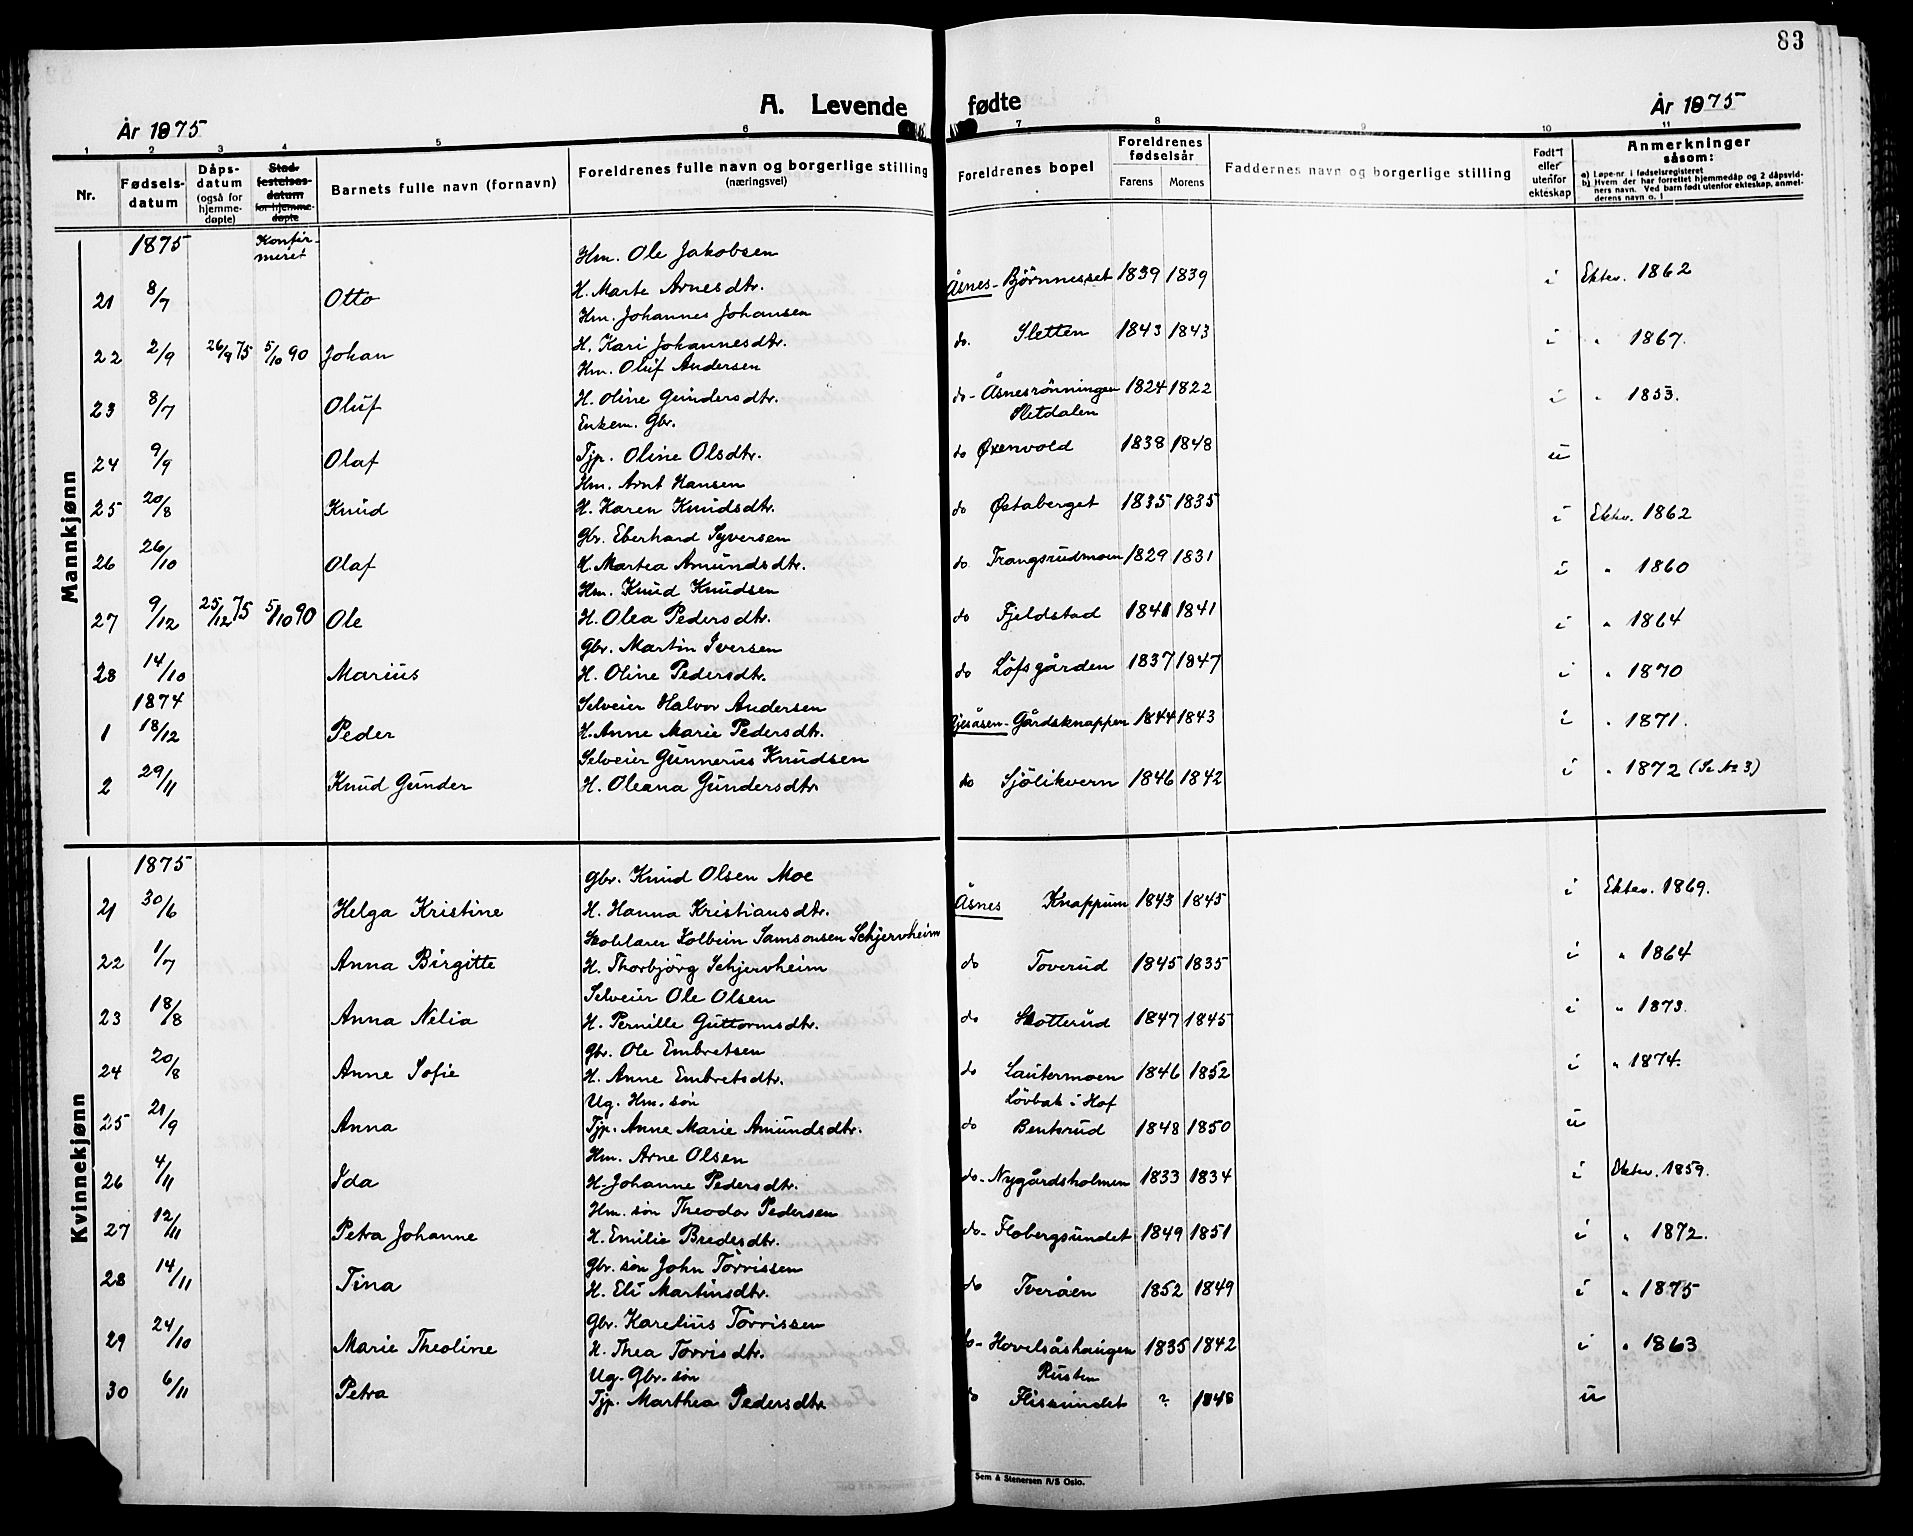 83
A. Levende fødte
År 1875
År 1875
1 2 3 4 5 6 7 8 9 10 11
Nr. Fødsels-datum Dåps-datum (også for hjemme-døpte) Stad-festelses-datum for hjemme-døpte Barnets fulle navn (fornavn) Foreldrenes fulle navn og borgerlige stilling (næringsvei) Foreldrenes bopel Foreldrenes fødselsår Farens Morens Faddernes navn og borgerlige stilling Født i eller utenfor ekteskap Anmerkninger såsom:
a) Løpe-nr. i fødselsregisteret
b) Hvem der har forrettet hjemmedåp og 2 dåpsvidners navn. Ved barn født utenfor ekteskap, anmelderens navn o. l
Mannkjønn
1875 Konfir-meret
Hm. Ole Jakobsen
21 8/7 Otto H. Marte Arnesdtr. Åsnes - Bjørnnesset 1839 1839 i Ektev. 1862
Hm. Johannes Johansen
22 2/9 26/9 75 5/10 90 Johan H. Kari Johannesdtr. do. Sletten 1843 1843 i " 1867.
Hm. Oluf Andersen
23 8/7 Oluf H. Oline Gundersdtr. do - Åsnesrönningen 1824 1822 i " 1853.
Enkem. Gbr. Sletdalen
24 9/9 Olaf Tjp. Oline Olsdtr. do Øxenvold 1838 1848 u
Hm. Arnt Hansen
25 20/8 Knud H. Karen Knudsdtr. do Østaberget 1835 1835 i Ektev. 1862
Gbr. Eberhard Syversen
26 26/10 Olaf H. Martea Amundsdtr. do Trangsrudmoen 1829 1831 i " 1860
Hm. Knud Knudsen
27 9/12 25/12 75 5/10 90 Ole H. Olea Pedersdtr. do Fjeldstad 1841 1841 i " 1864
Gbr. Martin Iversen
28 14/10 Marius H. Oline Pedersdtr. do Löfsgården 1837 1847 i " 1870
1874 Selveier Halvor Andersen
1 18/12 Peder H. Anne Marie Pedersdtr. Gjesåsen - Gårdsknappen 1844 1843 i " 1871.
Selveier Gunnerius Knudsen
2 29/11 Knud Gunder H. Oleana Gundersdtr. do Sjölikvern 1846 1842 i " 1872 (Se № 3)
Kvinnekjønn
1875
Gbr. Knud Olsen Moe
21 30/6 Helga Kristine H. Hanna Kristiansdtr. Åsnes Knappum 1843 1845 i Ektev. 1869.
Skolelærer Kolbein Samsonsen Schjervheim
22 1/7 Anna Birgitte H. Thorbjörg Schjervheim do Toverud 1845 1835 i " 1864
Selveier Ole Olsen
23 18/8 Anna Nelia H. Pernille Guttormsdtr. do Skotterud 1847 1845 i " 1873.
Gbr. Ole Embretsen
24 20/8 Anne Sofie H. Anne Embretsdtr. do Lautermoen 1846 1852 i " 1874.
Ug. Hm. søn Lövbak i Hof
25 21/9 Anna Tjp. Anne Marie Amundsdtr. do Bentsrud 1848 1850 u
Hm. Arne Olsen
26 4/11 Ida H. Johanne Pedersdtr. do - Nygårdsholmen 1833 1834 i Ektev. 1859.
Hm. søn Theodor Pedersen
27 12/11 Petra Johanne H. Emilie Bredesdtr. do - Flobergsundet 1849 1851 i " 1872.
Gbr. søn John Törrissen
28 14/11 Tina H. Eli Martinsdtr. do Tveråen 1852 1849 i " 1875
Gbr. Karelius Törrissen
29 24/10 Marie Theoline H. Thea Törrisdtr. do - Hovelsåshaugen 1835 1842 i " 1863
Ug. Gbr. søn Rusten
30 6/11 Petra Tjp. Marthea Pedersdtr. do Flissundet ? 1848 u
Sem & Stenersen A/S Oslo.